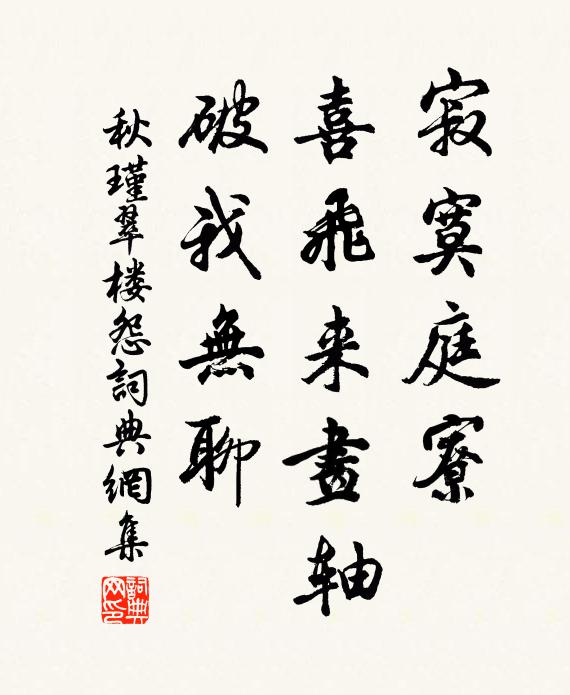 寂寞庭寮
喜飛来畫軸
破我無聊
秋瑾翠楼怨詞典網集
詞典网印